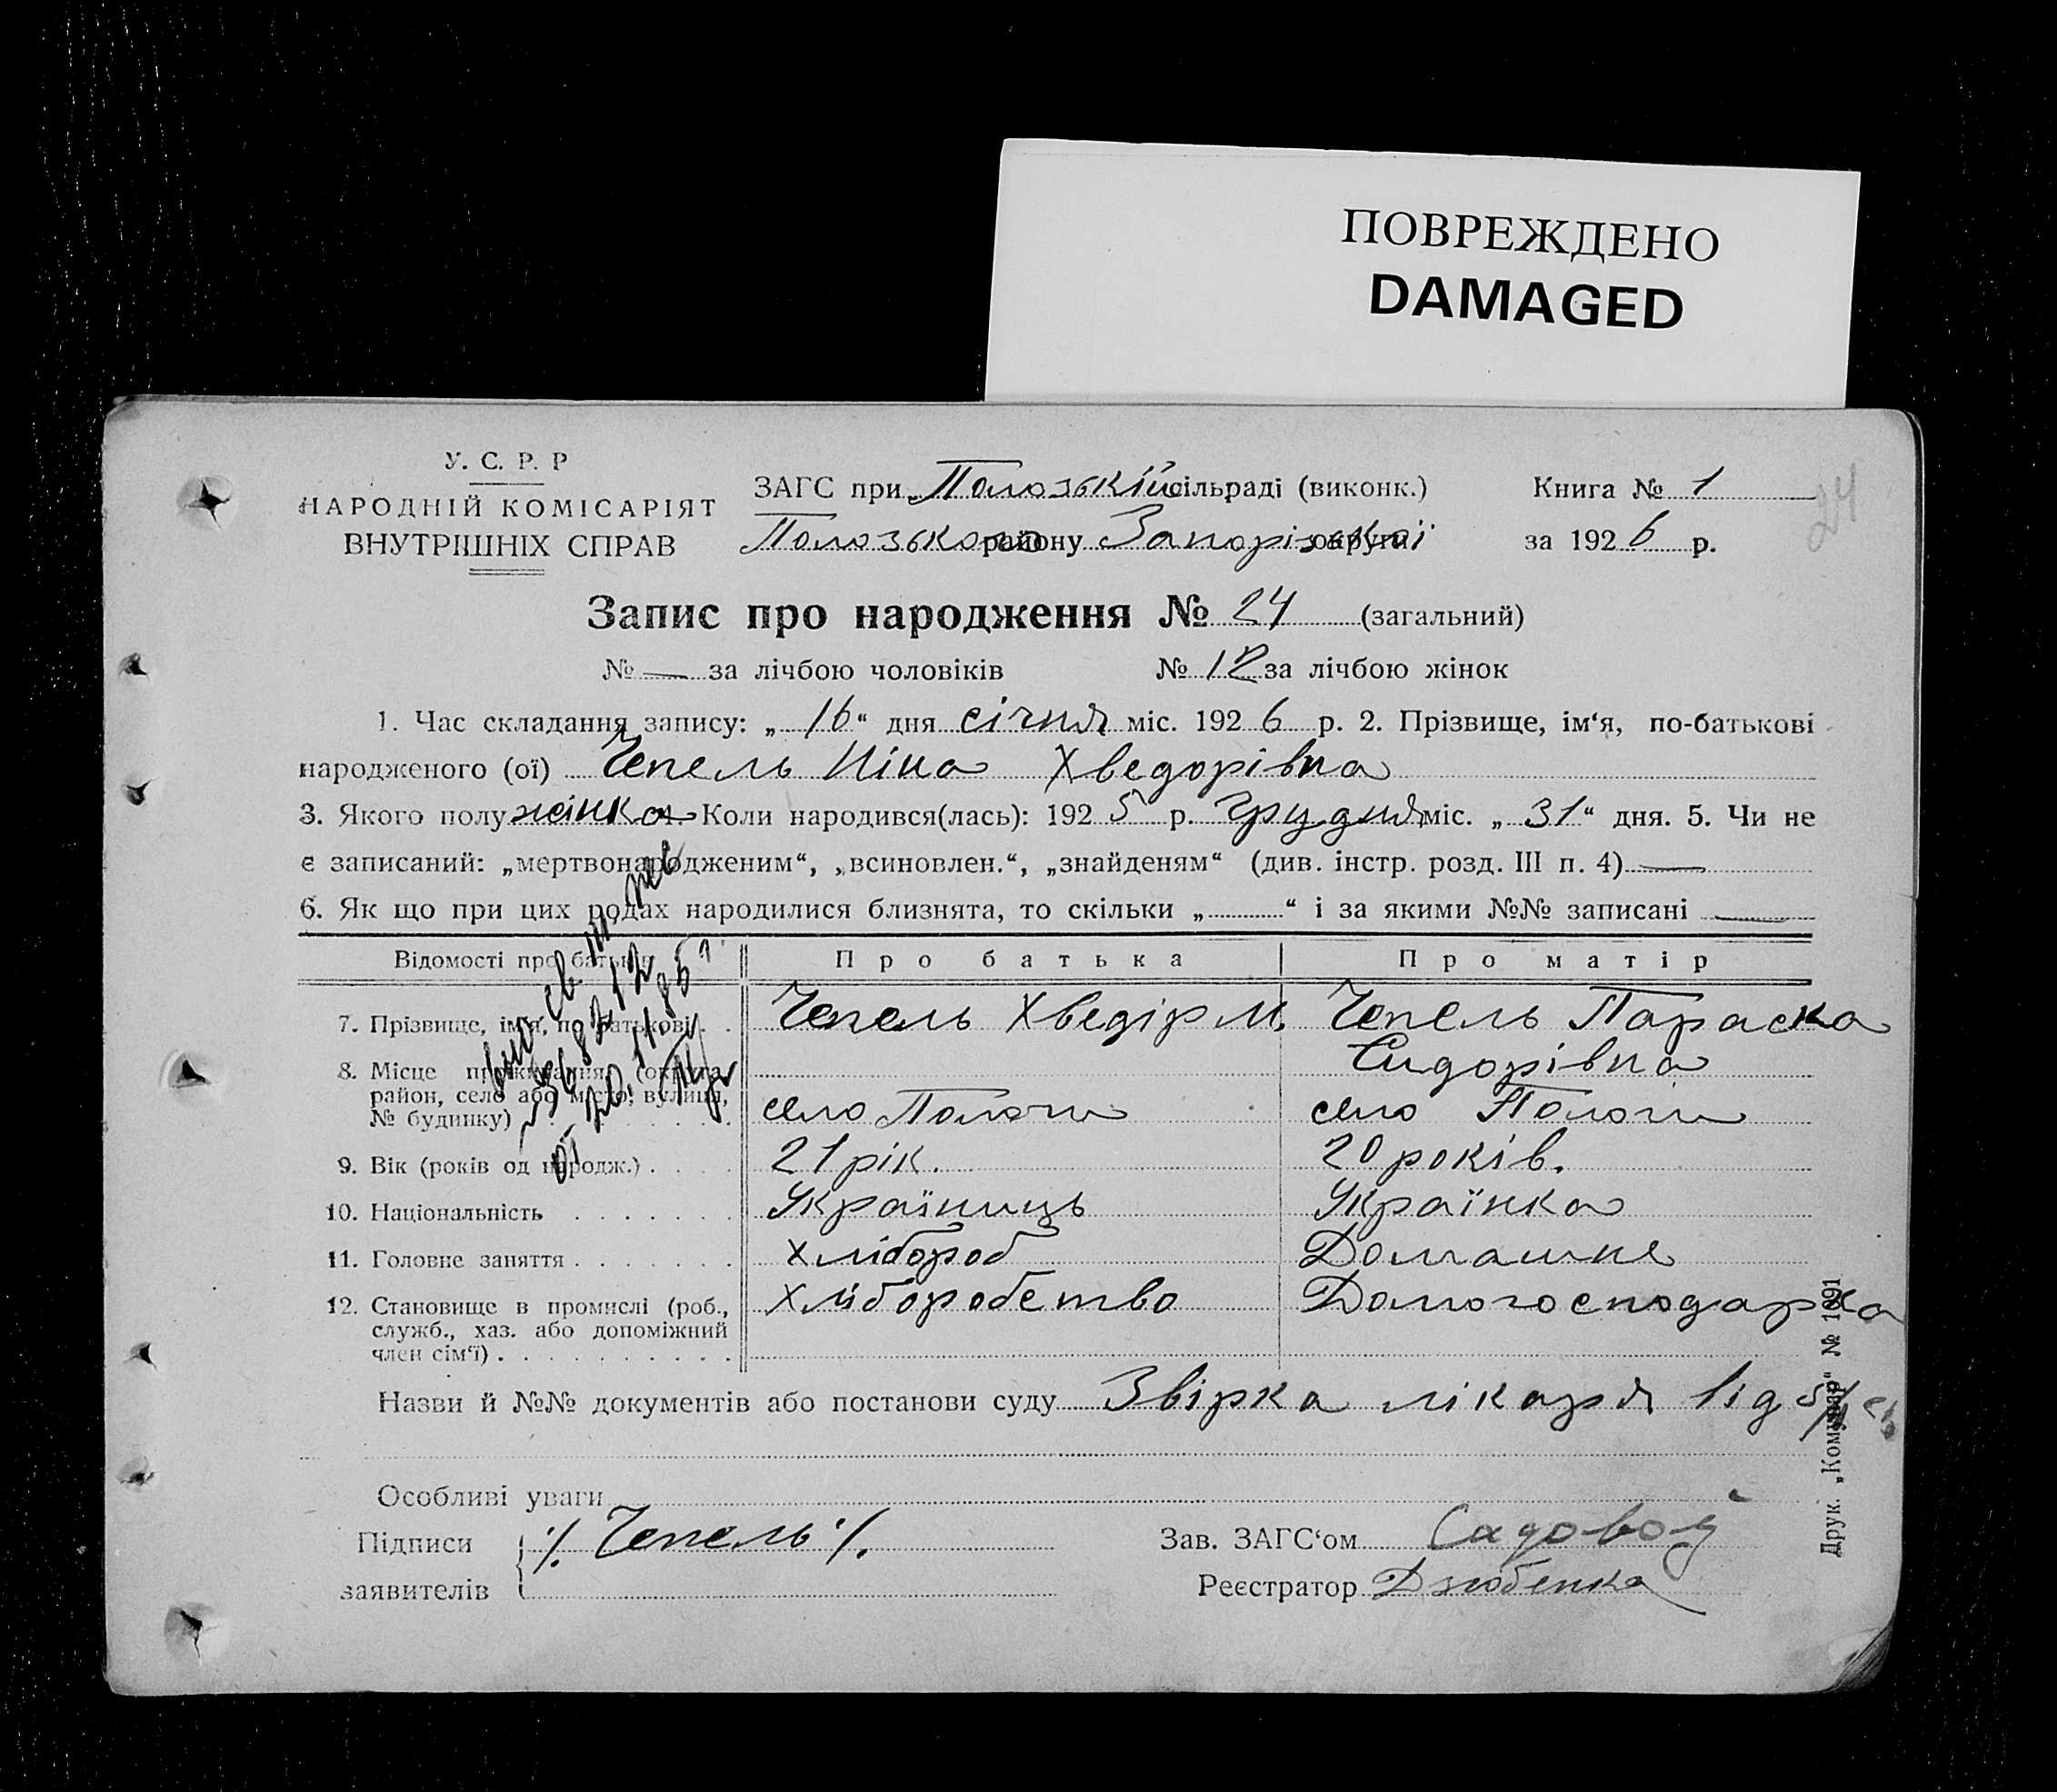 ПОВРЕЖДЕНО
DAMAGED
У. С. Р. Р
НАРОДНІЙ КОМІСАРІЯТ
ВНУТРІШНІХ СПРАВ
ЗАГС при Полозькій сільраді (виконк.)
Полозького району Запорізької округи
Книга № 1
за 1926 р.
24
Запис про народження № 24 (загальний)
№ — за лічбою чоловіків № 12 за лічбою жінок
1. Час складання запису: „ 16 “ дня січня міс. 1926 р. 2. Прізвище, ім‘я, по-батькові
народженого (ої) Чепель Ніна Хведорівна
3. Якого полу жінка. Коли народився(лась): 1925 р. Грудня міс. „ 31 “ дня. 5. Чи не
є записаний: „мертвонародженим“, „всиновлен.“, „знайденям“ (див. інстр. розд. III п. 4) —
6. Як що при цих родах народилися близнята, то скільки „ “ і за якими №№ записані —
Відомості про батьків Про батька Про матір
7. Прізвище, ім‘я, по батькові Чепель Хведір М. Чепель Параска
Сидорівна
8. Місце проживання (округа,
район, село або місто, вулиця,
№ будинку) село Пологи село Пологи
9. Вік (років од народж.) 21 рік. 20 років.
10. Національність Українць Українка
11. Головне заняття Хлібороб Домашнє
12. Становище в промислі (роб., Хліборобство Домогосподарка
служб., хаз. або допоміжний
член сім‘ї)
Назви й №№ документів або постанови суду Звірка лікаря від
Особливі уваги
Підписи ·/. Чепель ·/.
заявителів
Зав. ЗАГС‘ом Садовой
Реєстратор Дзюбенко
Друк. „Комунар“ № 1891